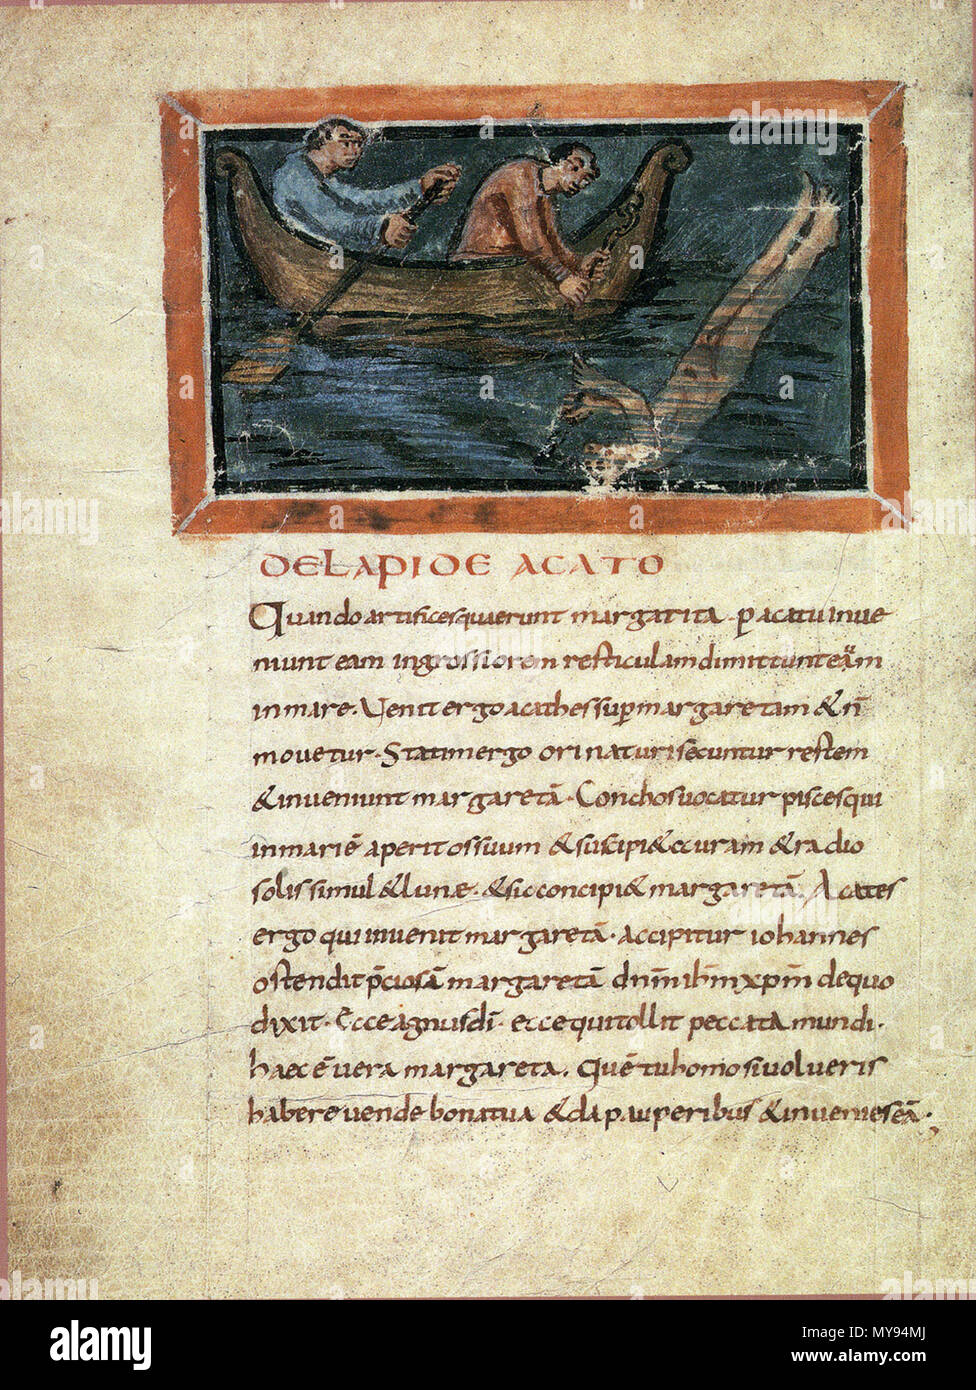 DE LAPIDE ACATO
Quando artifices quaerunt margarita · p̄ acatu inue
niunt eam ingrossiorem resticulam dimittunt eam
in mare · Venit ergo acathes sup̄ margaretam & n̄
mouetur · Statim ergo orinaturi secuntur restem
& inueniunt margaretā · Conchos uocatur pisces qui
in mari ē aperit os suum & suscipi& ccuram & radio
solis simul & lunae · & sic concipi& margaretā. Acates
ergo qui inuenit margaretā · accipitur iohannes
ostendit p̄ciosā margaretā dnm̄ ihm̄ xpm̄ de quo
dixit · Ecce agnus dī · ecce qui tollit peccata mundi ·
haec ē uera margareta. Quē tu homo si uolueris
habere uende bona tua & da pauperibus & inuenies eā ·,
alamy
alamy stock photo
MY94MJ
www.alamy.com